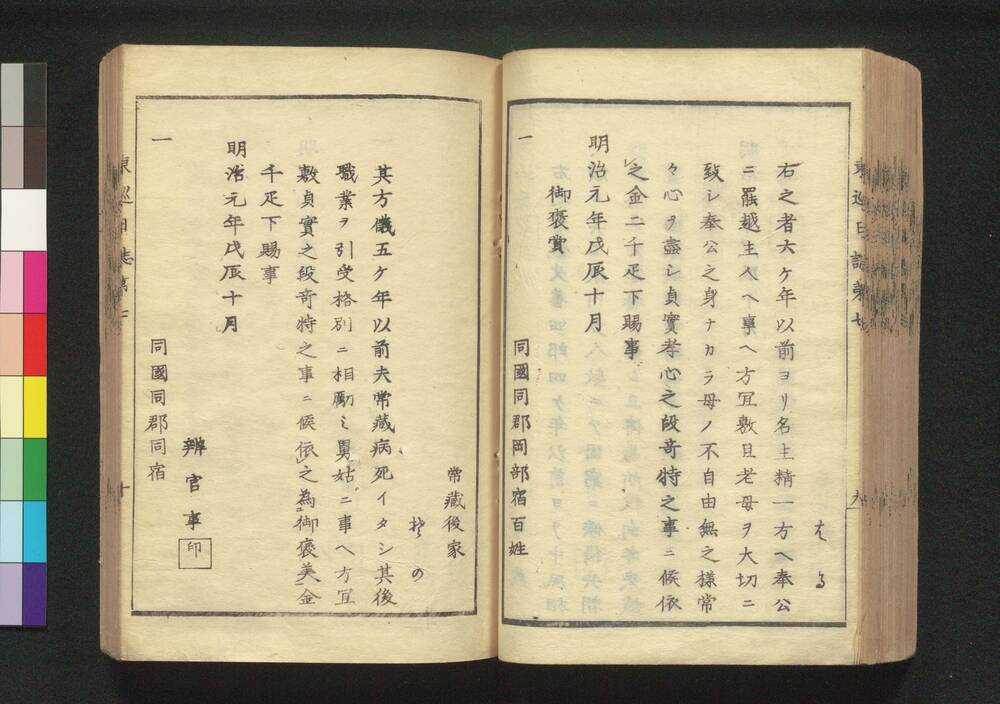 東巡日誌第七
九
はる
右之者六ケ年以前ヨリ名主精一方ヘ奉公
ニ罷越主人ヘ事ヘ方冝敷且老母ヲ大切ニ
致シ奉公之身ナカラ母ノ不自由無之様常
々心ヲ盡シ貞實孝心之段竒特之事ニ候依
之金二千疋下賜事
明治元年戊辰十月
御褒賞
一
同國同郡岡部宿百姓
常藏後家
その
其方儀五ケ年以前夫常藏病死イタシ其後
職業ヲ引受格別ニ相勵ミ舅姑ニ事ヘ方冝
敷貞實之段竒特之事ニ候依之為御褒美金
千疋下賜事
明治元年戊辰十月
辨官事
印
一
同國同郡同宿
東巡日誌第七
十